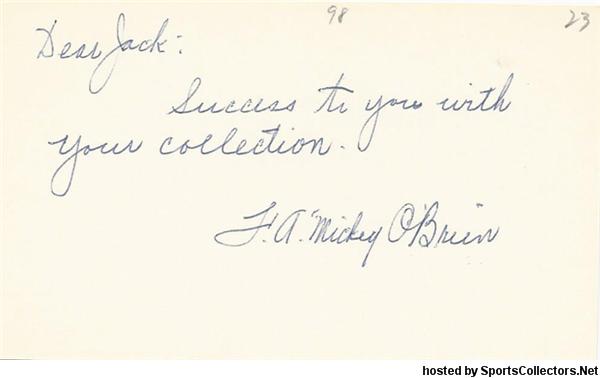 98
23
Dear Jack:
Success to you with
your collection.
F. A. "Mickey O'Brien
hosted by SportsCollectors.Net